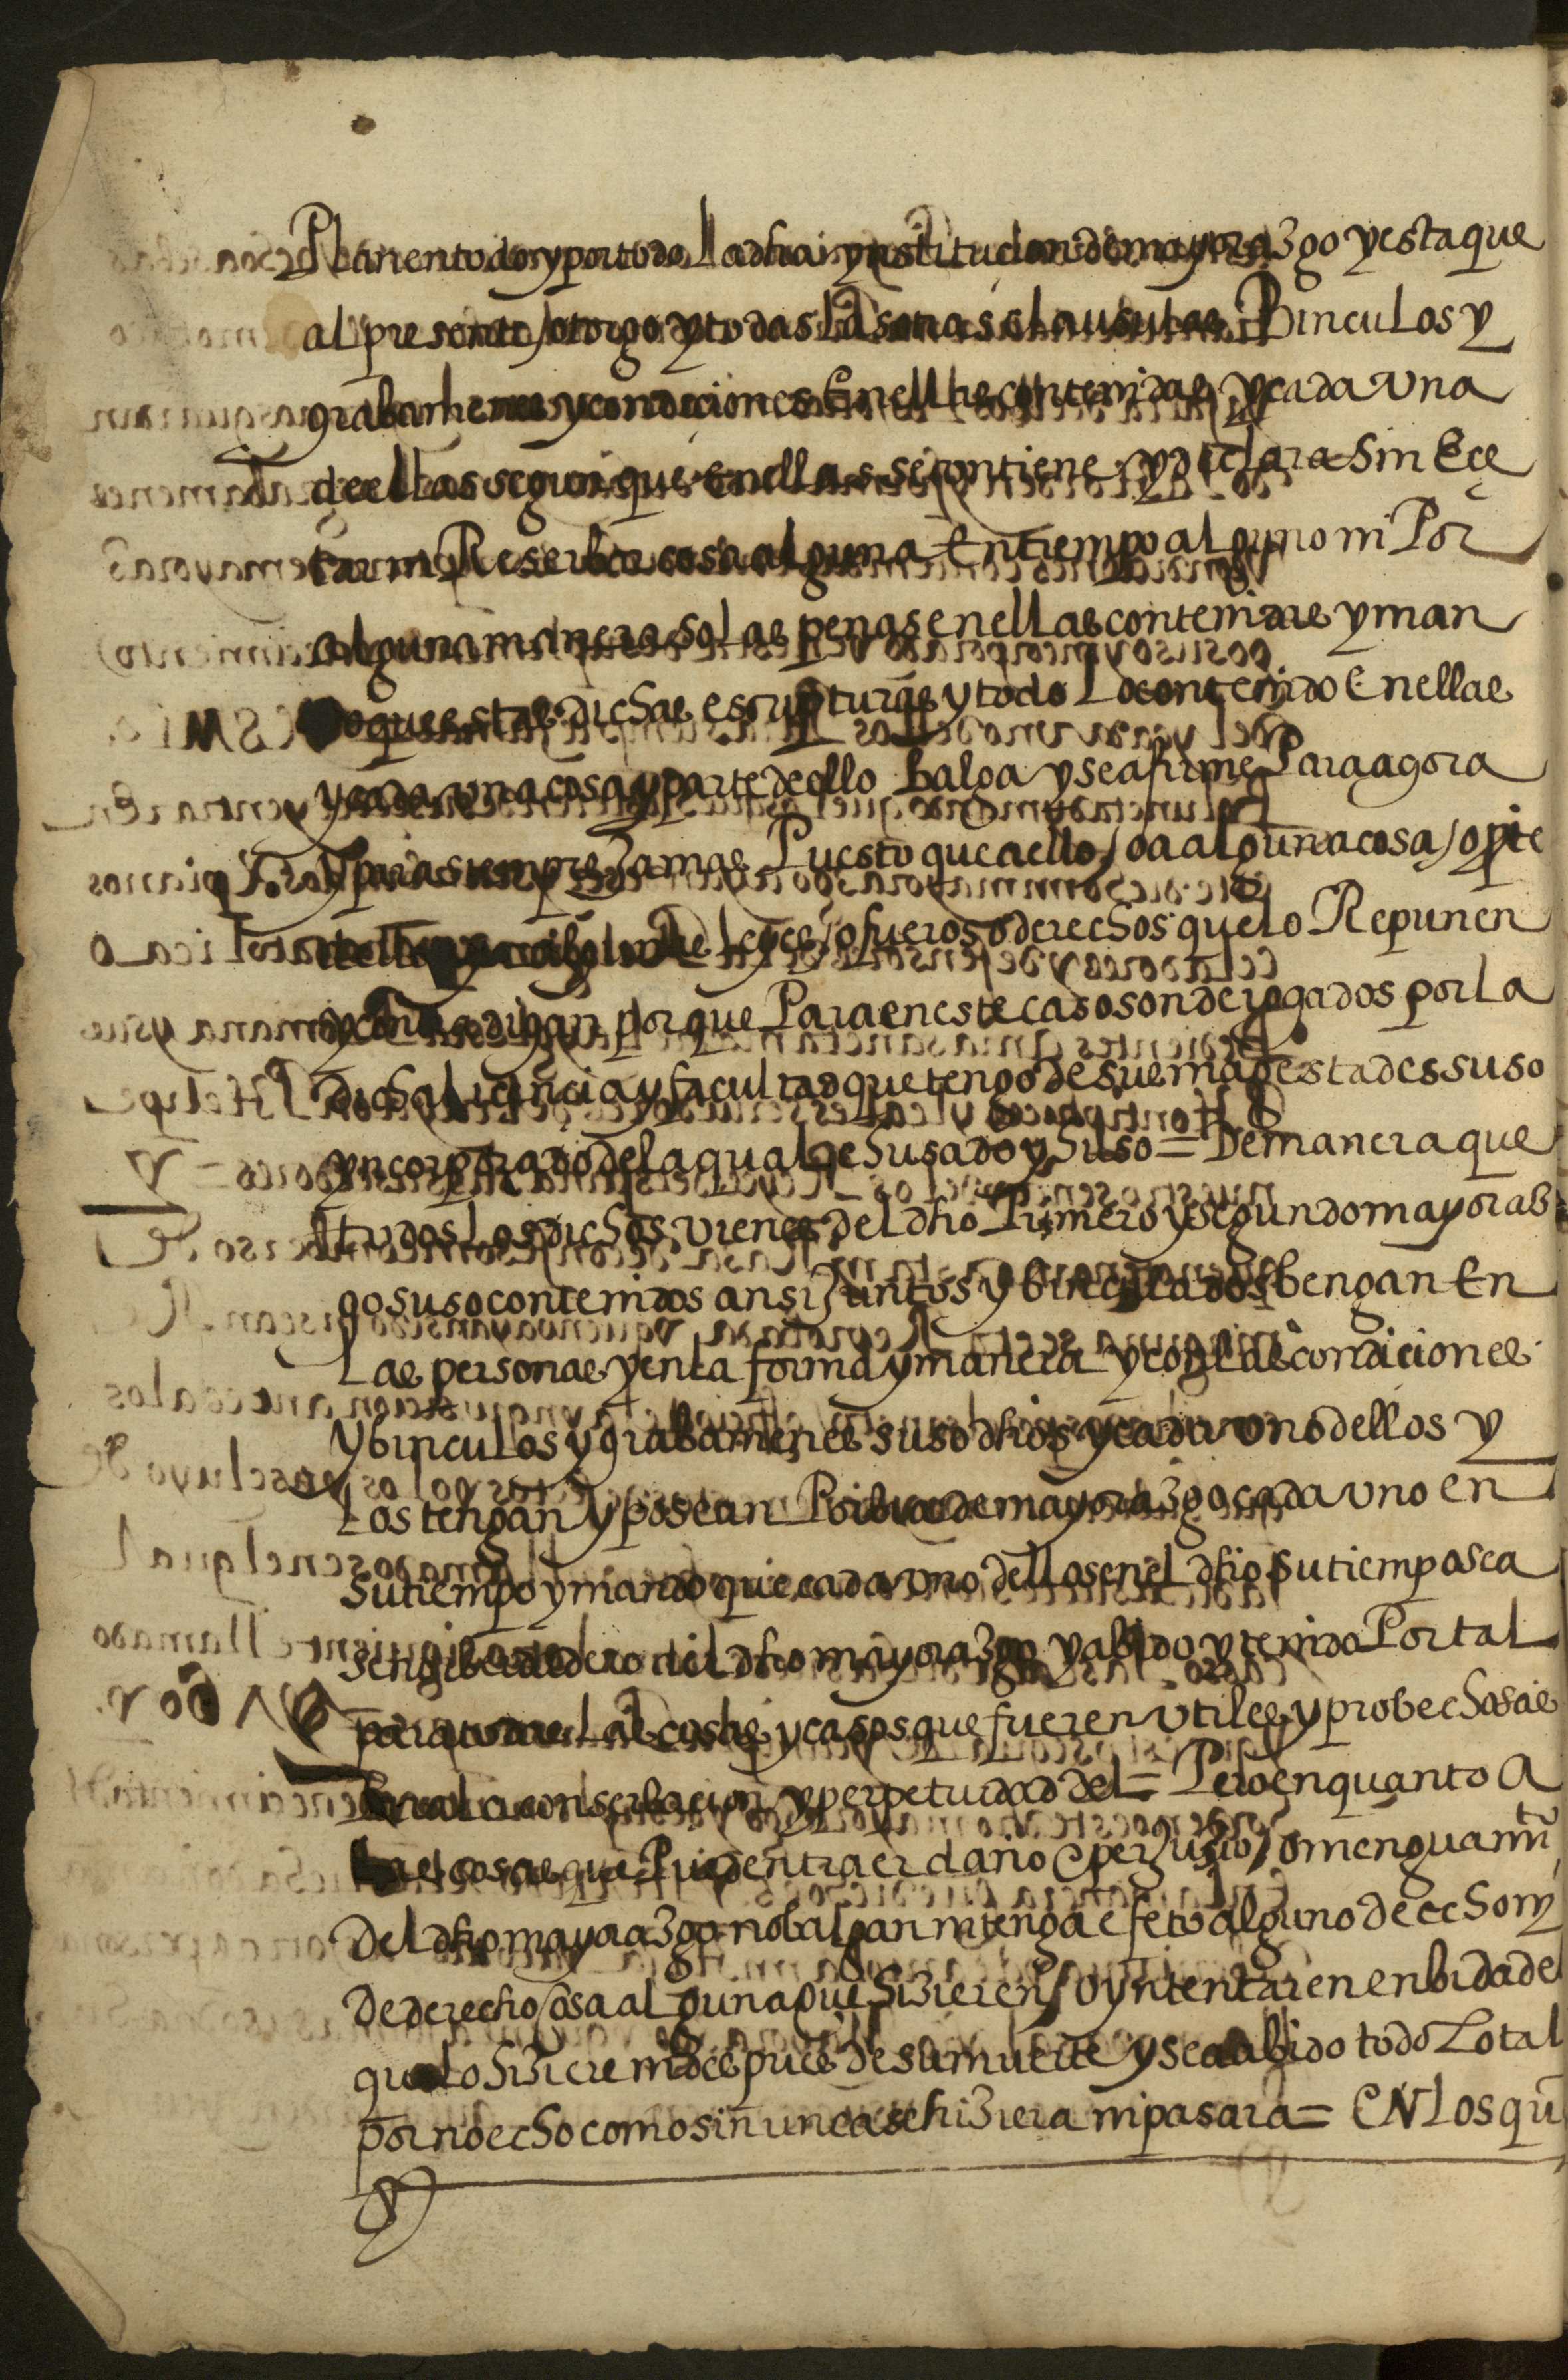 Plan en todo y por todo la dha ynstitucion de mayorazgo y esta que
al presente otorgo y todas las clausulas Binculos y
grabamenes y condiciones En ellas contenidas y cada una
de ellas segun que en ellas se contiene y declara Sin Ece
tar ni Reserbar cosa alguna En tiempo alguno ni Por
alguna manera so las penas en ellas contenidas y man
do que estas dichas escripturas y todo Lo contenido En ellas
y cada una cosa y parte de ello balga y sea firme Para agora
y para siempre Jamas Puesto que a ello / o a alguna cosa / o pte
dello leyes / o fueros o derechos que lo Repunen
y contradigan por que Para en este caso son derogados por La
dicha licencia y facultad que tengo de su magestad es suso
yncorporado de la qual he husado y huso = De manera que
todos Los dichos vienes del dho Primero y segundo mayoraz
go suso contenidos ansi Juntos y binculados bengan En
Las personas y en la forma y manera y con las condiciones
y binculos y grabamenes suso dhos y cada uno dellos y
Los tengan y posean Por de mayorazgo cada uno en
su tiempo y mando que cada uno dellos en el dho su tiempo sea
del dho mayorazgo y abido y tenido Por tal
para Las cosas y casos que fueren utiles y probechosas
Para la conserbacion y perpetuidad del = Pero en quanto A
Las cosas que Pueden traer daño e perjuicio / o menguamito
Del dho mayorazgo no balgan ni tenga efeto alguno de echo ny
De derecho cosa alguna que hizieren / o yntentaren en bida del
que lo hiziere ni despues de su muerte y sea abido todo Lo tal
por no echo como si nunca se hiziera ni pasara = EN Los qu